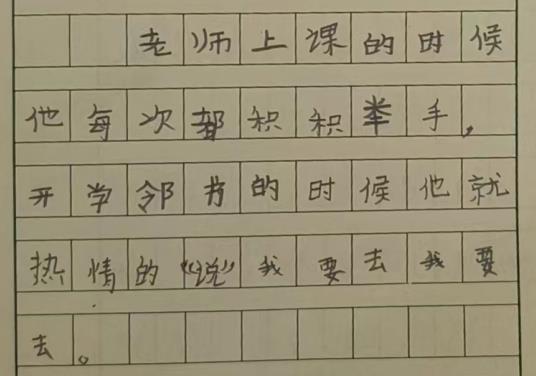 老师上课的时候
他每次都积积举手，
开学邻书的时候他就
热情的“说”我要去我要
去。